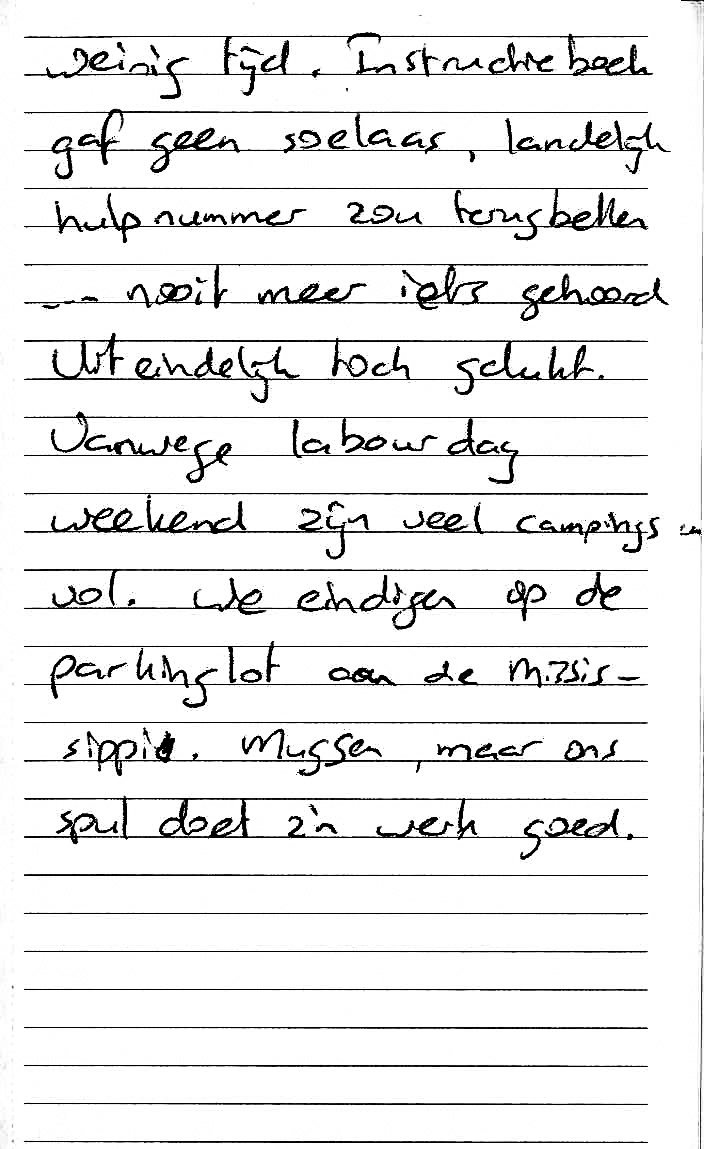 weinig tijd. Instructieboek
gaf geen soelaas, landelijk
hulpnummer zou terugbellen
--- nooit meer iets gehoord
Uiteindelijk toch gelukt.
Vanwege labour dag
weekend zijn veel campings
vol. We eindigen op de
parkinglot aan de Missis-
sippi. Muggen, maar ons
spul doet z'n werk goed.